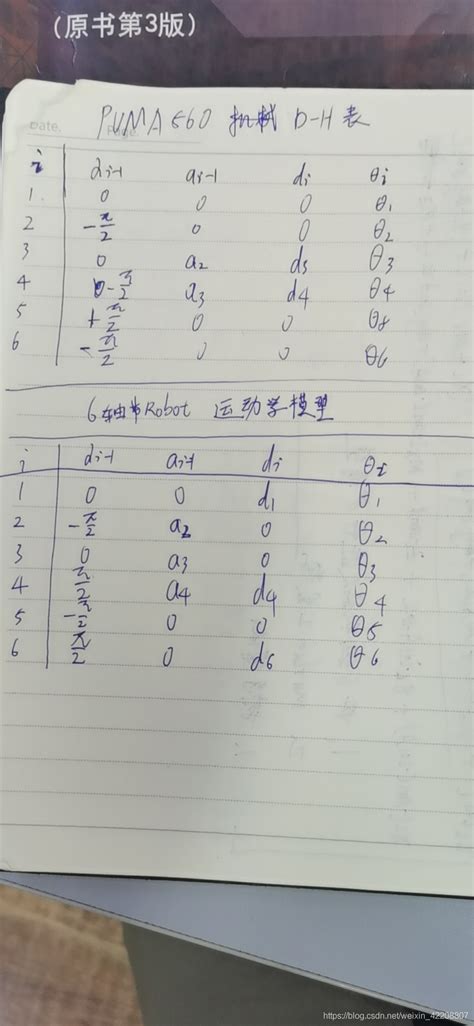 （原书第3版）
Date. Page.
PUMA 560 机械 D-H表
i αi-1 ai-1 di θi
1 0 0 0 θ1
2 -π/2 0 0 θ2
3 0 a2 d3 θ3
4 -π/2 a3 d4 θ4
5 +π/2 0 0 θ5
6 -π/2 0 0 θ6
6轴节Robot 运动学模型
i αi-1 ai-1 di θi
1 0 0 d1 θ1
2 -π/2 a2 0 θ2
3 0 a3 0 θ3
4 π/2 a4 d4 θ4
5 -π/2 0 0 θ5
6 π/2 0 d6 θ6
https://blog.csdn.net/weixin_42208307